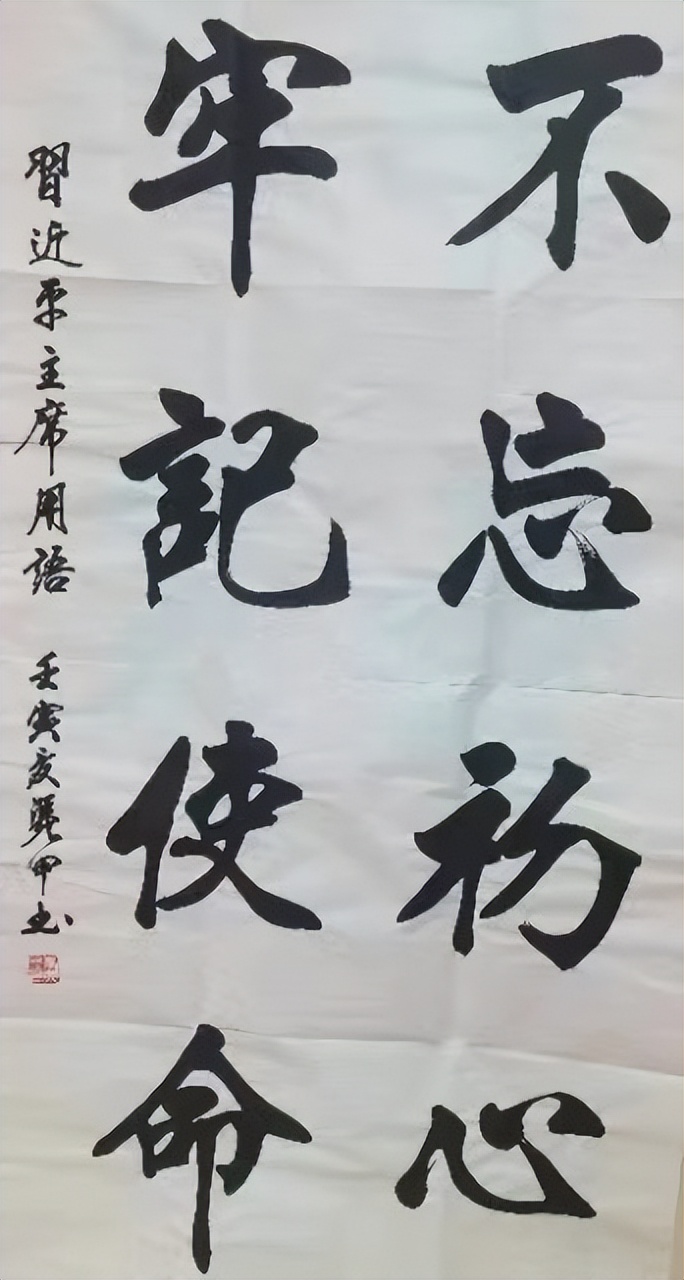 不忘初心
牢記使命
習近平主席用語 壬寅亥月 甲书